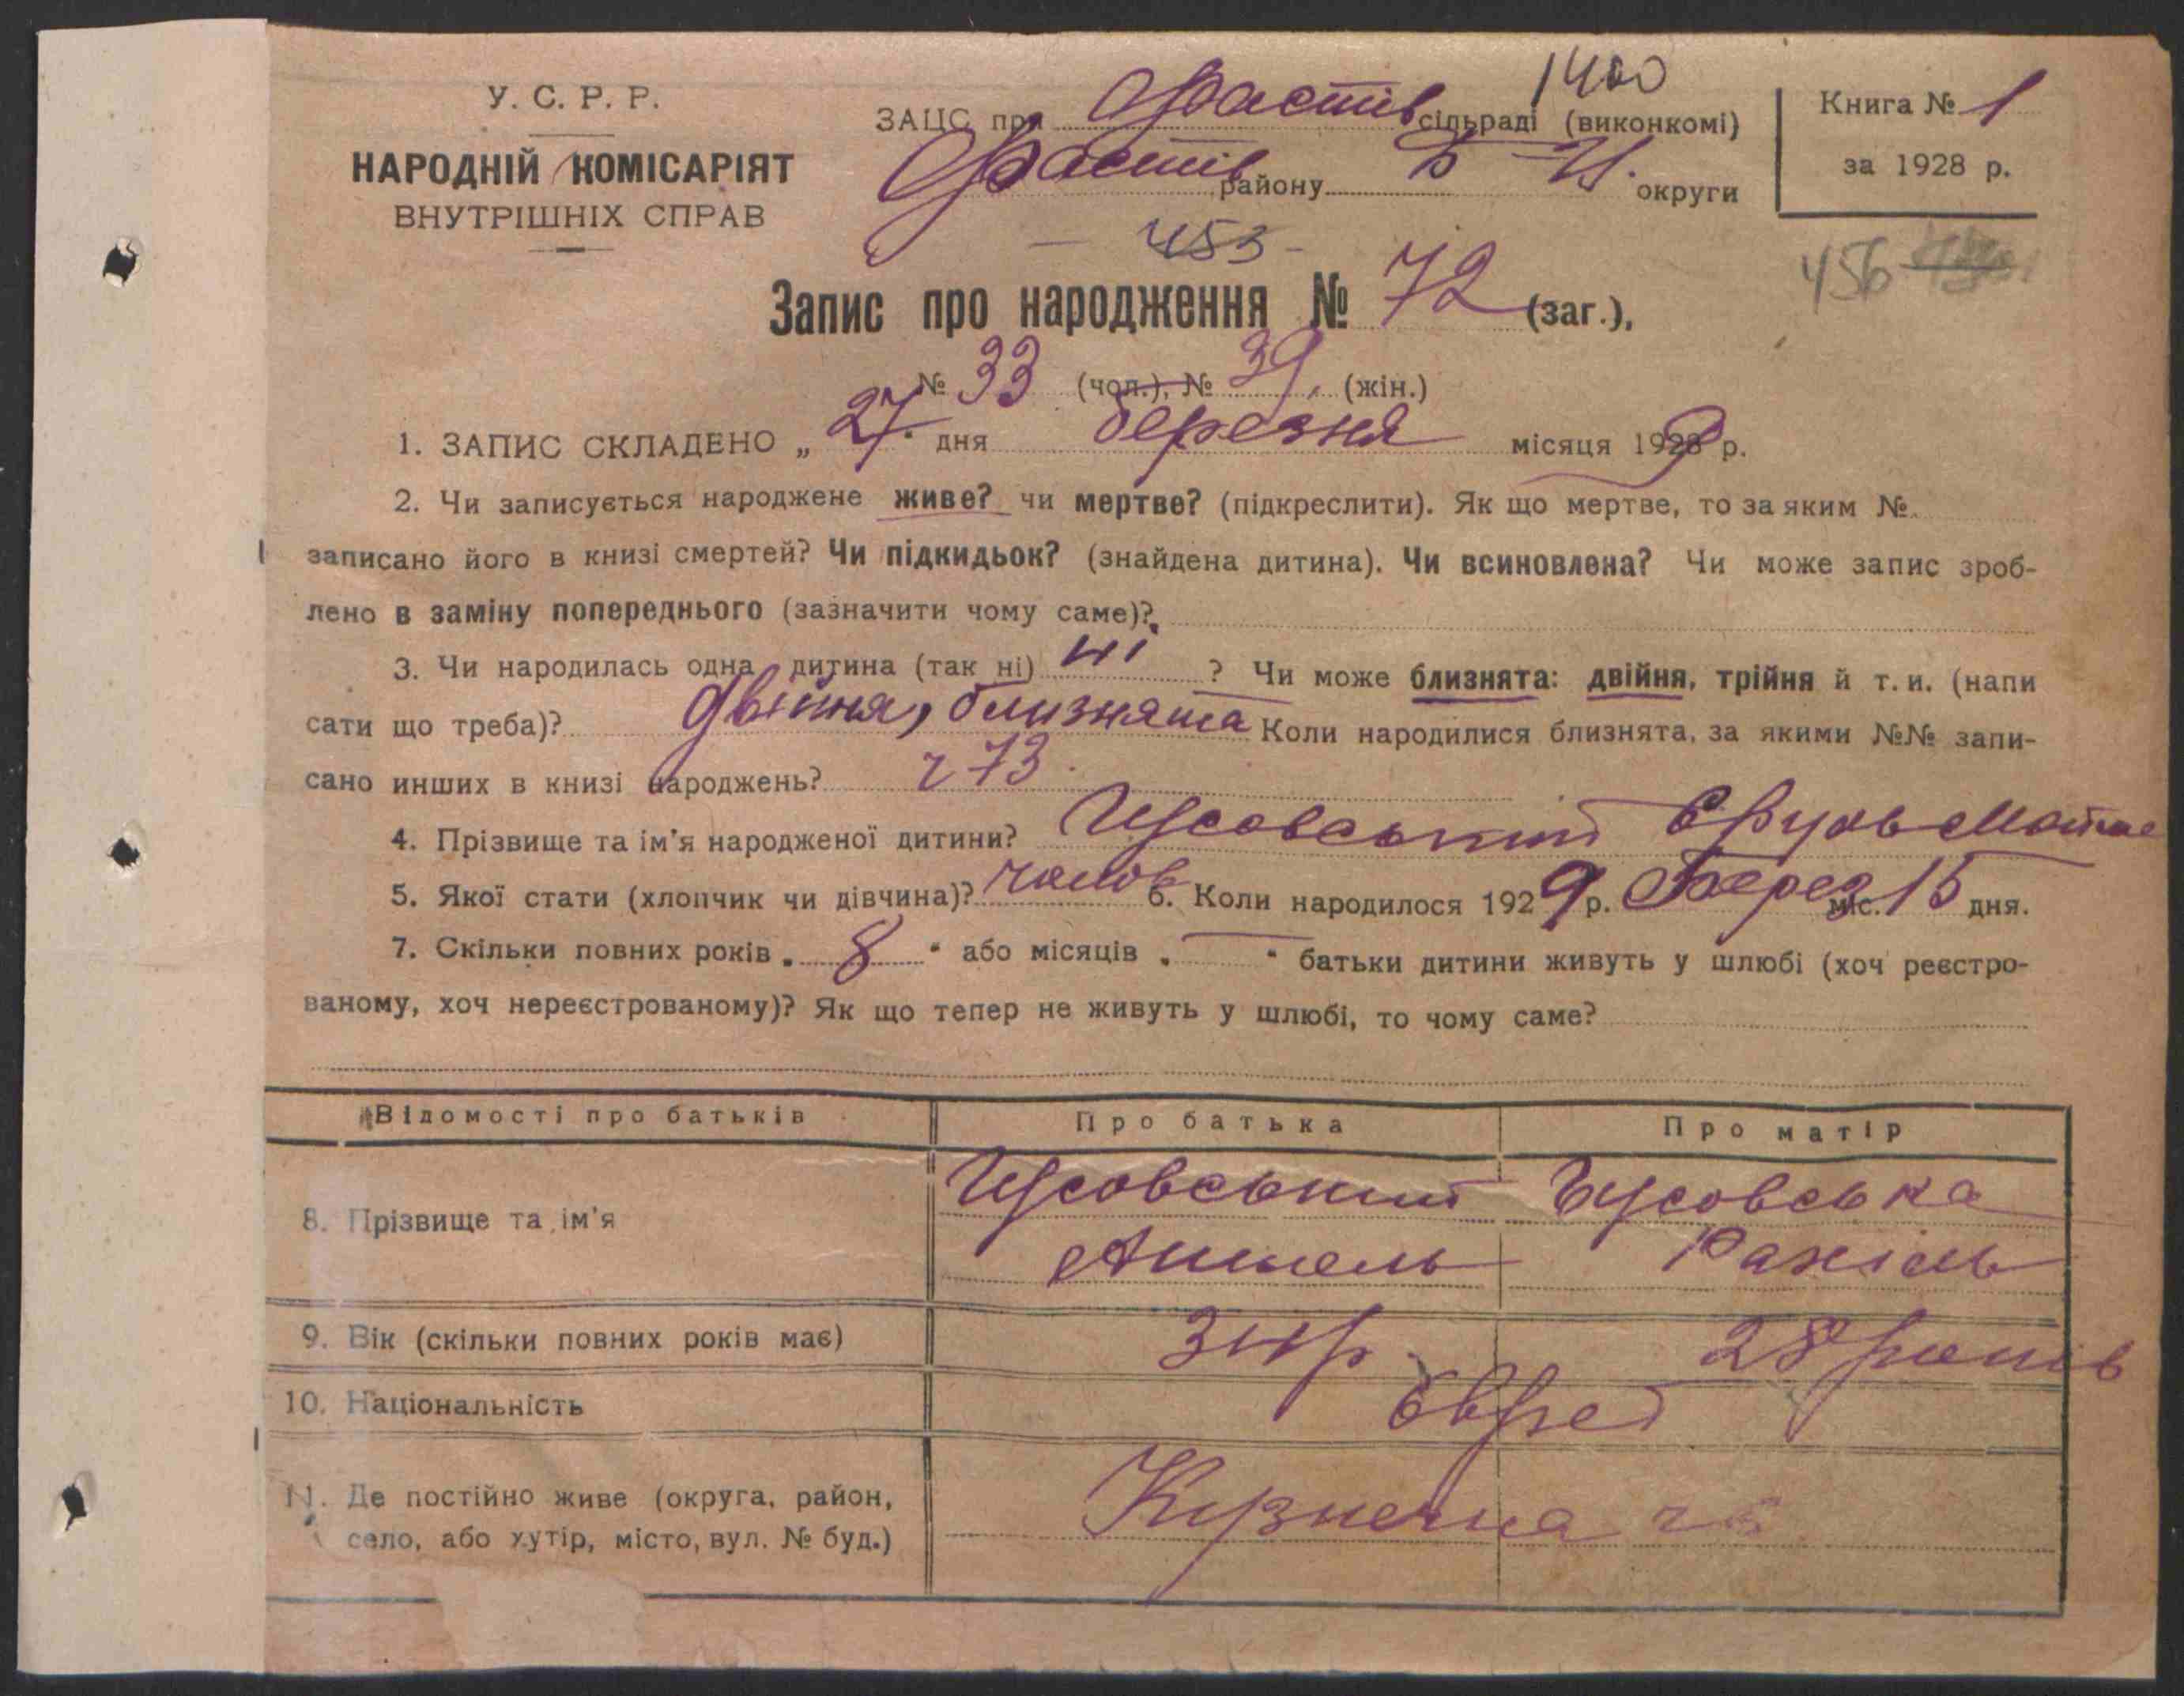 У. С. Р. Р.
НАРОДНІЙ КОМІСАРІЯТ
ВНУТРІШНІХ СПРАВ
1400
ЗАЦС при Фастів сільраді (виконкомі)
Фастів району Б-Ц. округи
Книга № 1
за 1928 р.
- 453 -
456
Запис про народження № 72 (заг.),
№ 33 (чол.), № 39, (жін.)
1. ЗАПИС СКЛАДЕНО „ 27 " дня березня місяця 1929 р.
2. Чи записується народжене живе? чи мертве? (підкреслити). Як що мертве, то за яким №
записано його в книзі смертей? Чи підкидьок? (знайдена дитина). Чи всиновлена? Чи може запис зроб-
лено в заміну попереднього (зазначити чому саме)?
3. Чи народилась одна дитина (так ні) ні ? Чи може близнята: двійня, трійня й т. и. (напи
сати що треба)? двійня, близнята Коли народилися близнята, за якими №№ запи-
сано инших в книзі народжень? ч 73
4. Прізвище та ім'я народженої дитини?
5. Якої стати (хлопчик чи дівчина)? чолов 6. Коли народилося 1929 р. Берез міс. 15 дня.
7. Скільки повних років „ 8 " або місяців „ — " батьки дитини живуть у шлюбі (хоч реєстро-
ваному, хоч нереєстрованому)? Як що тепер не живуть у шлюбі, то чому саме?
Відомості про батьків Про батька Про матір
8. Прізвище та ім'я
Аншель Рахіль
9. Вік (скільки повних років має) 34 р. 28 років
10. Національність Єврей
11. Де постійно живе (округа, район,
село, або хутір, місто, вул. № буд.) Кузнечна